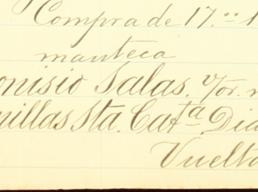 Compra de 17.00
manteca
onisio Salas. y/or.
nillas Sta. Cat.ta Dia
Vuelto